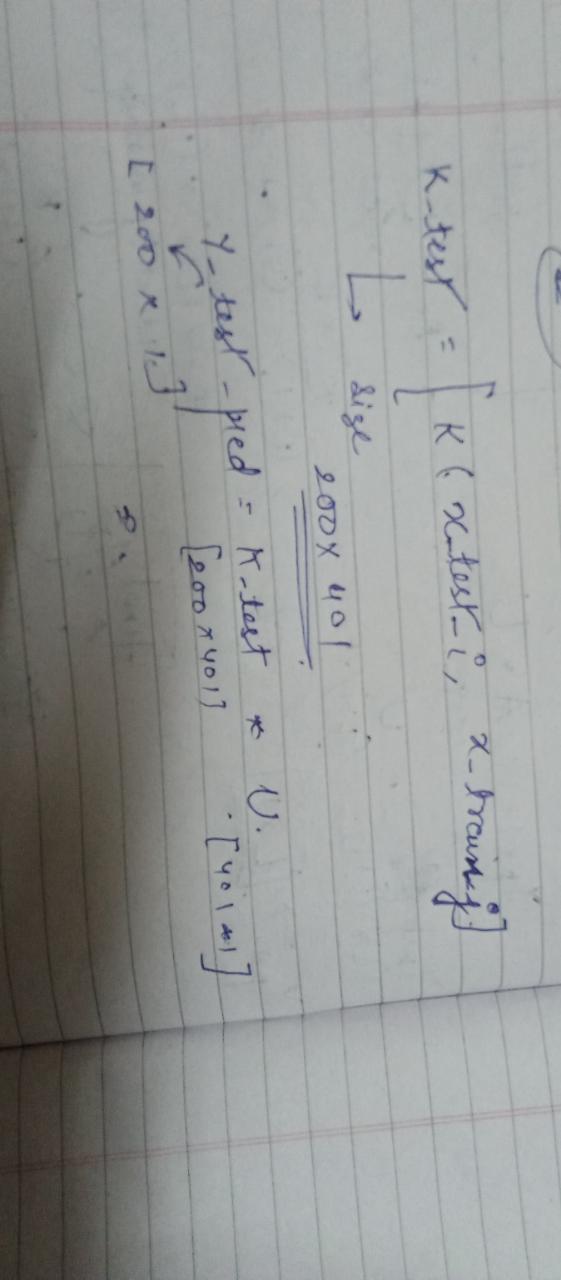 K_test = [ K ( x_test_i, x_train_j ]
↳ size
200 x 401
Y_test_pred = K_test * U.
[200 x 401] [401 x 1]
[ 200 x 1 ]